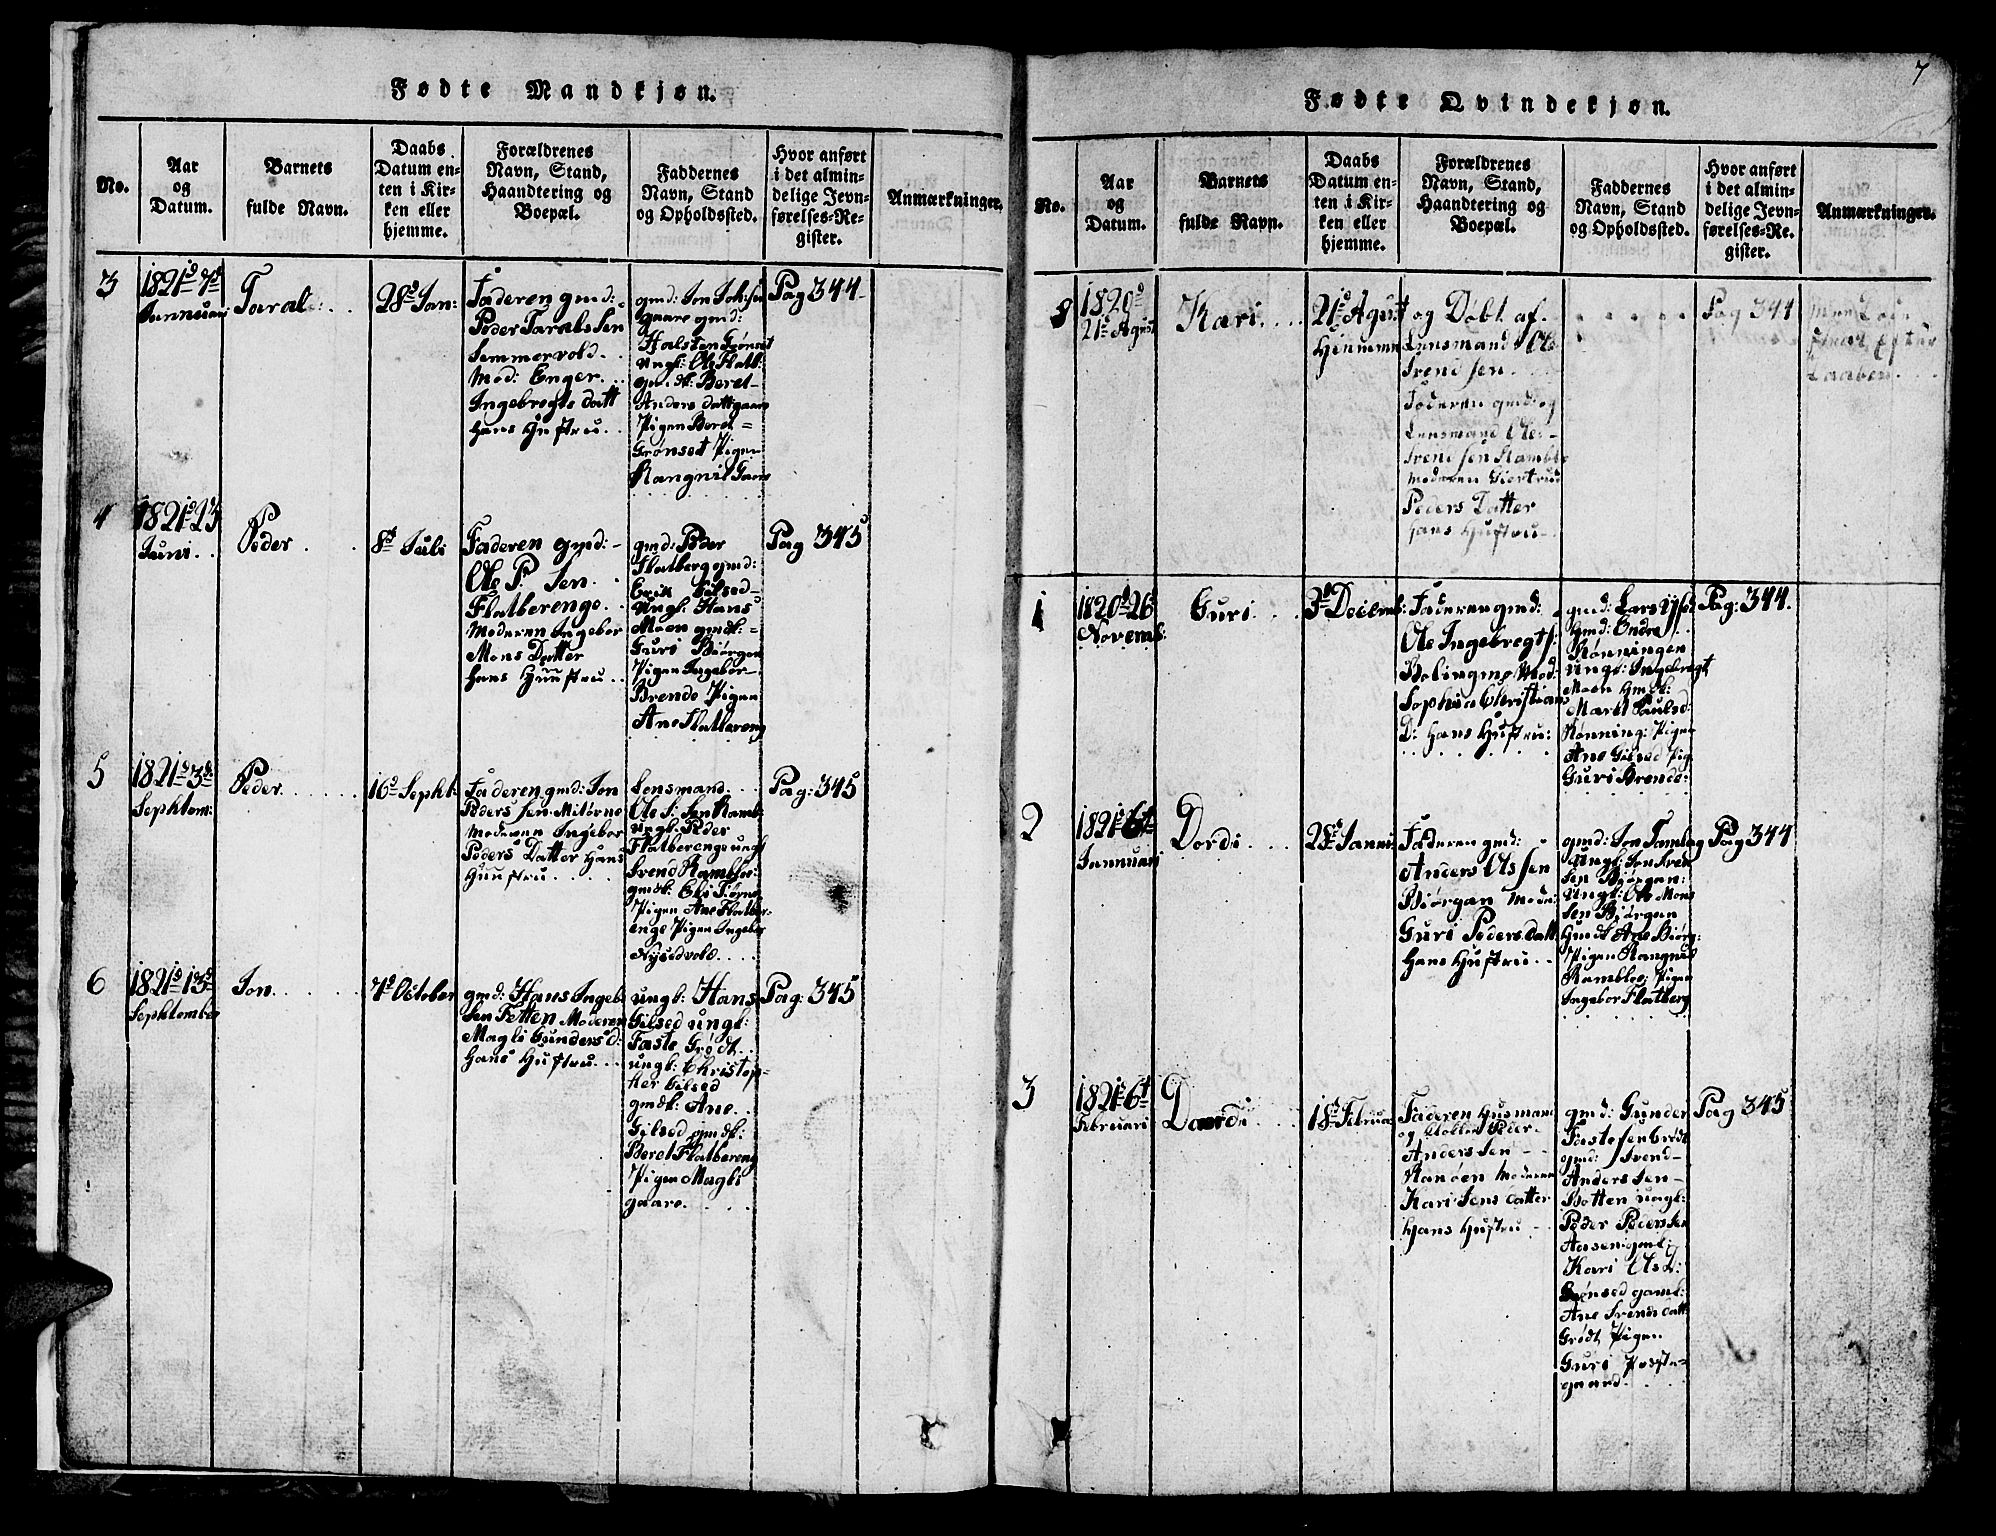 Fødte Mandkjøn.
No.
Aar
og
Datum.
Barnets
fulde Navn.
Daabs
Datum en-
ten i Kir-
ken eller
hjemme.
Forældrenes
Navn, Stand,
Haandtering og
Boepæl.
Faddernes
Navn, Stand
og Opholdssted.
Hvor anført
i det almin-
delige Jevn-
førelses-Re-
gister.
Anmærkninger.
3
1821 7de
Jannuari
Taral
28de Jan:
Faderen gmd:
Peder Tarals Sen
Semmervold
Mod: Enger
Ingebregts datt
Hans Hustru
gmd: Jon
gaare gmd:
Halsten Grønset
Ungk: Ole Flatb:
gmdk: Beret
Anders datt gaare
Pigen Beret
Grønset Pigen
Rangnil Gaare
Pag 344
4
1821 23
Juni
Peder
8de Juli
Faderen gmd:
Ole P. Sen
Flatberenge
Moderen Ingebor
Mons Datter
Hans Hustru
gmd: Peder
Flatberg gmd:
Erik Gilsed
Ungk: Hans
Moen gmdk:
Guri Biørgen
Pigen Ingebor
Brende Pigen
Ane Flatbereng
Pag 345
5
1821 3de
Sephtem:
Peder
16de Sepht:
Faderen gmd: Jon
Peders Sen Mitørne
Moderen Ingebor
Peders Datter Hans
Hustru
Lensmand
Ole S: Sen Ramb:
Ungk: Peder
Flatberenge ungk
Svend Rambløe
gmdk: Eli Tiørne
Pigen Ane Flatber-
enge Pigen Ingebor
Nysedvold
Pag: 345
6
1821 13de
Sephtember
Jon
7de October
gmd: Hans Ingeb:
Sen Fetten Moderen
Magli Gunders d:
Hans Hustru
ungk: Hans
Gilsed ungk:
Faste Grødt
ungk: Christop-
her Gilsed
gmdk: Ane
Gilsed gmdk:
Beret Flatbereng
Pigen Magli
gaare
Pag: 345
7
Fødte Qvindekjøn.
No.
Aar
og
Datum.
Barnets
fulde Navn.
Daabs
Datum en-
ten i Kir-
ken eller
hjemme.
Forældrenes
Navn, Stand,
Haandtering og
Boepæl.
Faddernes
Navn, Stand
og Opholdssted.
Hvor anført
i det almin-
delige Jevn-
førelses-Re-
gister.
Anmærkninger.
1820
21de Agust
Kari
21de Agust
Hiemme
og Døbt af
Lensmand Ole
Svend Sen
Faderen gmd: og
Lensmand Ole
Svend Sen Rambløe
Moderen Giertrud
Peders Datter
Hans Hustru
Pag 344
Efter
Daaben
1
1820 26
Novemb:
Guri
3de Decemb:
Faderen gmd:
Ole Ingebregt S:
Bolingmo Mod:
Sophia Christians
D: Hans Hustru:
gmd: Lars
gmd: Endre
Rønningen
Ungk: Ingebregt
Moen gmdk:
Marit Paulsd:
Rønning: Pigen
Ane Gilsed Pig
Guri Brende:
Pag: 344.
2
1821 6te
Jannuari
Dordi
28de Januari
Faderen gmd:
Anders Ols Sen
Biørgan Mode:
Guri Peders datt
Hans Hustru
gmd: Jon Tamlag
Ungk: Jon Sven
Sen Biørgan:
Ungk: Ole Mons
Sen Biørgan
Gmdk Ane Biørg:
Pigen Rangnil
Rambløe: Pigen
Ingebor Flatberg
Pag 344
3
1821 6te
Februari
Daardi
18de Februa
Faderen Husmand
og Klokker Peder
Anders Sen
Ranøen Moderen
Kari Jens Datter
Hans Hustru
gmd: Gunder
Faste Sen Grødt
gmd: Svend
Anders Sen
Botten ungk:
Peder Peders Sen
Aasen gmd:
Kari Ols D:
Grønsed gamk:
Ane Svends Datt:
Grødt Pigen
Guri Præste-
gaard
Pag 345